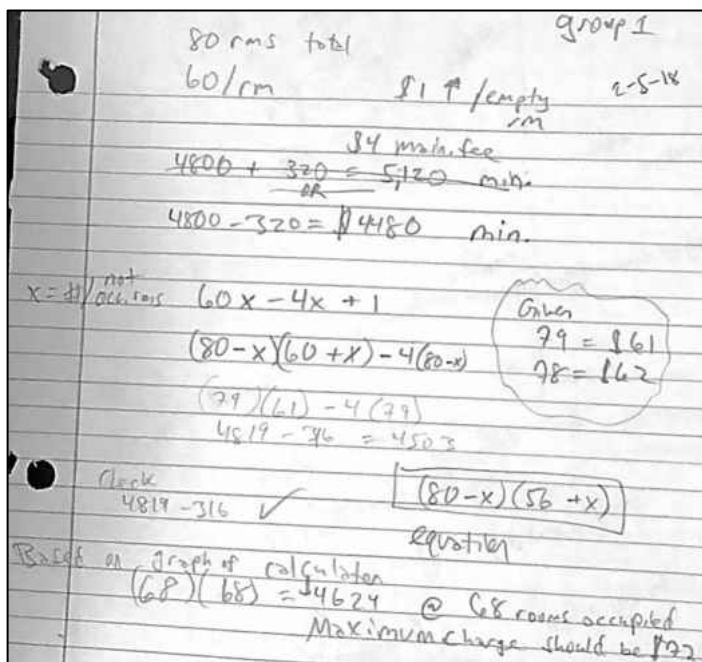 group 1
80 rms total
60/rm
$1 ↑ /empty rm
2-5-18
$4 main. fee
4800 + 320 = 5,120 min.
OR
4800 - 320 = $4480 min.
x = #/not occ. rms 60x - 4x + 1
(80-x)(60+x) - 4(80-x)
Given
79 = $61
78 = $62
(79)(61) - 4(79)
4819 - 316 = 4503
Check
4819 - 316 ✓
(80-x)(56+x)
equation
Based on graph of calculator
(68)(68) = $4624 @ 68 rooms occupied
Maximum charge should be $72